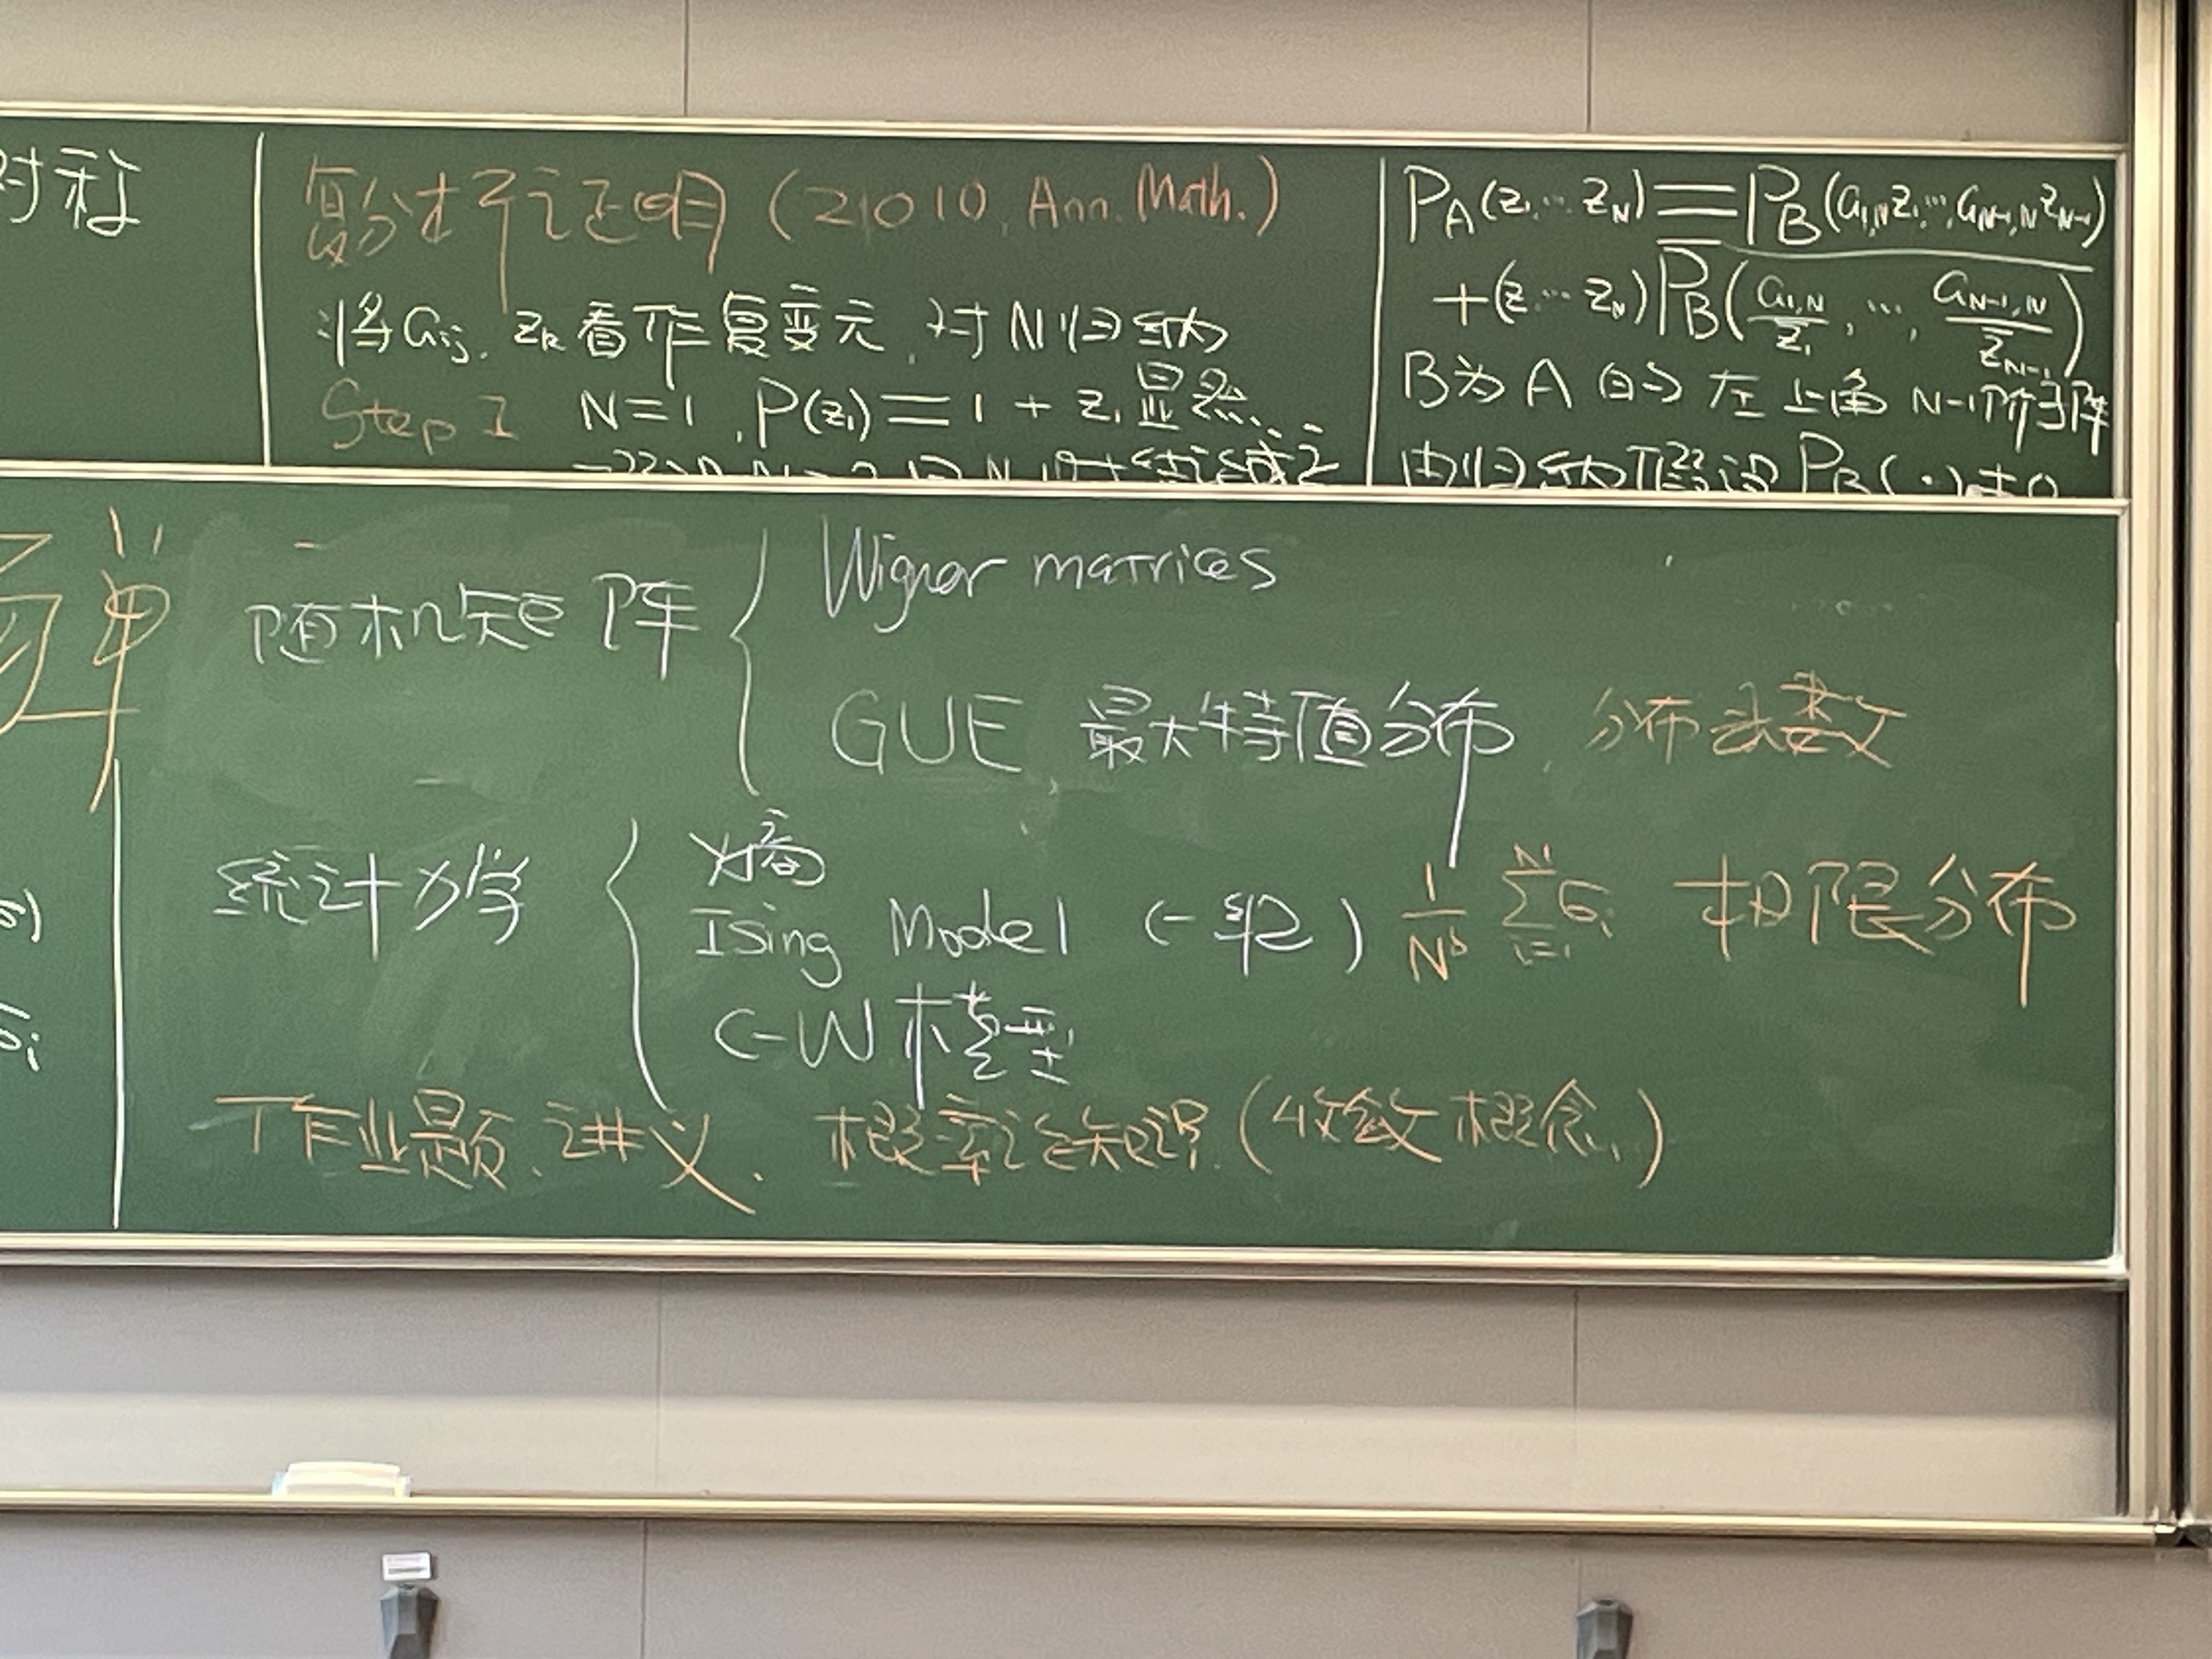 对称
复分析证明 (2010, Ann. Math.)
将 a_{ij}, z_k 看作复变元, 对 N 归纳
Step 1 N=1, P(z_1) = 1 + z_1 显然
N 时结论成立
P_A(z_1 ... z_N) = P_B(a_{1,N}z_1, ..., a_{N-1,N}z_{N-1})
+(z_1 ... z_N) P_B(\frac{a_{1,N}}{z_1}, ..., \frac{a_{N-1,N}}{z_{N-1}})
B为A的左上角 N-1阶子阵
由归纳假设 P_B(·)≠0
单
随机矩阵
Wigner matrices
GUE 最大特征值分布, 分布函数
统计力学
熵
Ising Model (一维) \frac{1}{N^b} \sum_{i=1}^{N} σ_i 极限分布
C-W模型
作业题、讲义、概率论知识 (收敛概念)